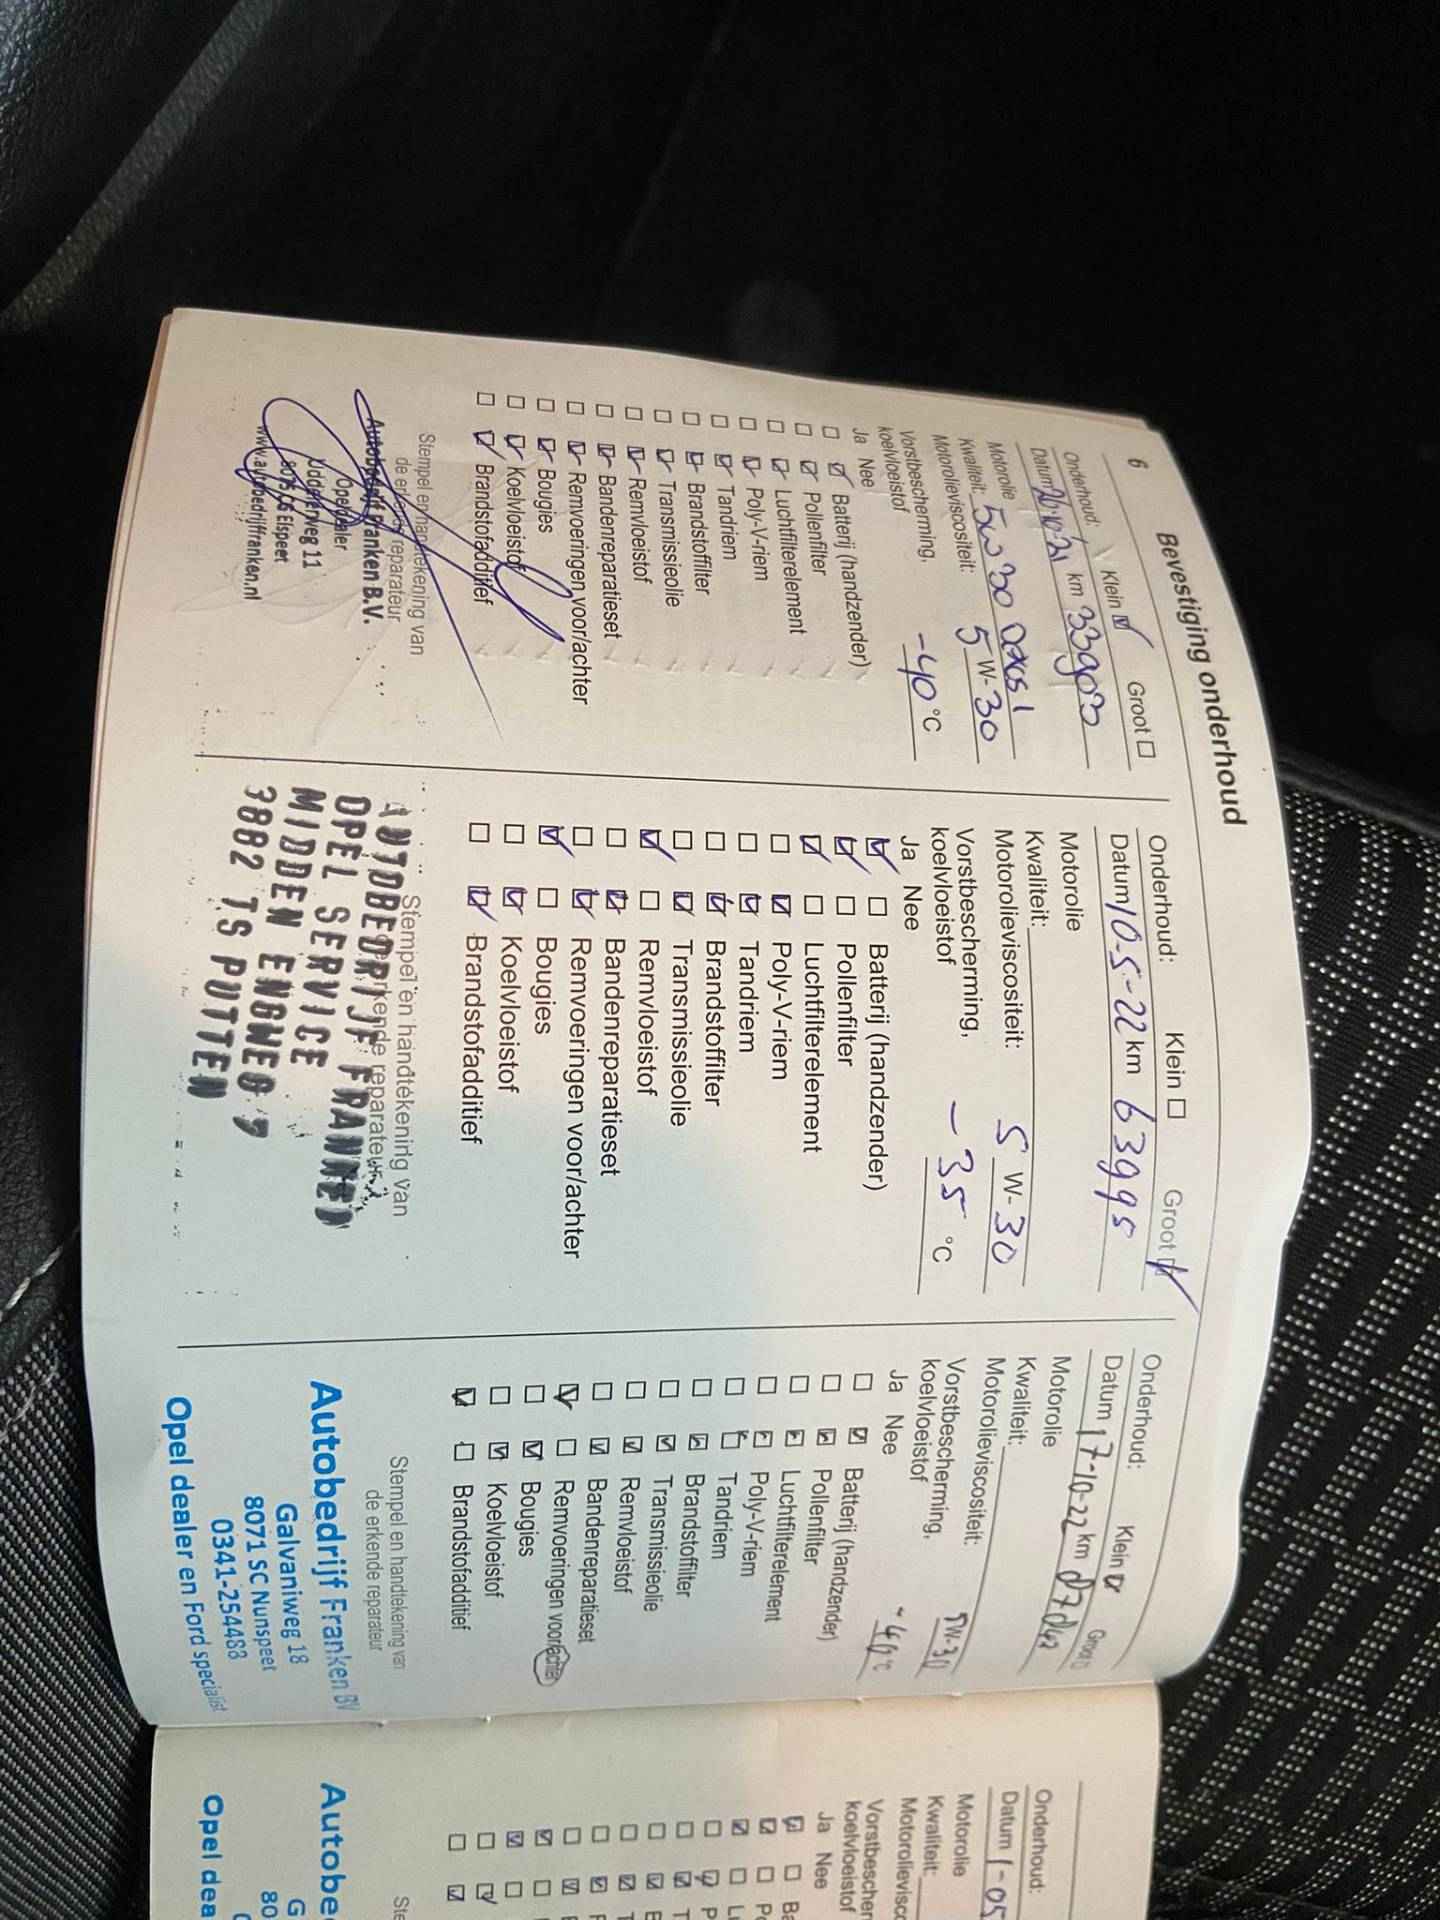 6
Bevestiging onderhoud
Onderhoud: Klein ☑ Groot ☐
Datum 20.10.21 km
Motorolie
Kwaliteit: 5w30
Motorolieviscositeit: 5 W- 30
Vorstbescherming,
koelvloeistof -40 °C
Ja Nee
☐ ☑ Batterij (handzender)
☐ ☑ Pollenfilter
☐ ☑ Luchtfilterelement
☐ ☑ Poly-V-riem
☐ ☑ Tandriem
☐ ☑ Brandstoffilter
☐ ☑ Transmissieolie
☐ ☑ Remvloeistof
☐ ☑ Bandenreparatieset
☐ ☑ Remvoeringen voor/achter
☐ ☑ Bougies
☐ ☑ Koelvloeistof
☐ ☑ Brandstofadditief
Stempel en handtekening van
de erkende reparateur
Autobedrijf Franken B.V.
Opeldealer
Uddelerweg 11
8075 CG Elspeet
www.autobedrijffranken.nl
Onderhoud: Klein ☐ Groot ☑
Datum 10-5-22 km 63995
Motorolie
Kwaliteit:
Motorolieviscositeit: 5 W- 30
Vorstbescherming,
koelvloeistof -35 °C
Ja Nee
☑ ☐ Batterij (handzender)
☑ ☐ Pollenfilter
☑ ☐ Luchtfilterelement
☐ ☑ Poly-V-riem
☐ ☑ Tandriem
☐ ☑ Brandstoffilter
☐ ☑ Transmissieolie
☑ ☐ Remvloeistof
☐ ☑ Bandenreparatieset
☐ ☑ Remvoeringen voor/achter
☑ ☐ Bougies
☐ ☑ Koelvloeistof
☐ ☑ Brandstofadditief
Stempel en handtekening van
de erkende reparateur
AUTOBEDRIJF FRANKEN
OPEL SERVICE
MIDDEN ENGWEG 7
3882 TS PUTTEN
Onderhoud: Klein ☑ Groot ☐
Datum 17-10-22 km
Motorolie
Kwaliteit:
Motorolieviscositeit: 5W-30
Vorstbescherming,
koelvloeistof -40 °C
Ja Nee
☐ ☑ Batterij (handzender)
☐ ☑ Pollenfilter
☐ ☑ Luchtfilterelement
☐ ☑ Poly-V-riem
☐ ☑ Tandriem
☐ ☑ Brandstoffilter
☐ ☑ Transmissieolie
☐ ☑ Remvloeistof
☐ ☑ Bandenreparatieset
☑ ☐ Remvoeringen voor/achter
☐ ☑ Bougies
☐ ☑ Koelvloeistof
☑ ☐ Brandstofadditief
Stempel en handtekening van
de erkende reparateur
Autobedrijf Franken BV
Galvaniweg 18
8071 SC Nunspeet
0341-254488
Opel dealer en Ford specialist
Onderhoud:
Datum 1-05
Motorolie
Kwaliteit:
Motorolievisco
Vorstbescher
koelvloeistof
Ja Nee
☑ ☐ Ba
☑ ☐ Po
☑ ☐ L
☐ ☑ P
☐ ☑ T
☐ ☑ B
☐ ☑ T
☐ ☑
☐ ☑
☑ ☐
☑ ☐
☐ ☑
☐ ☑
Ste
Autobe
G
80
Opel dea